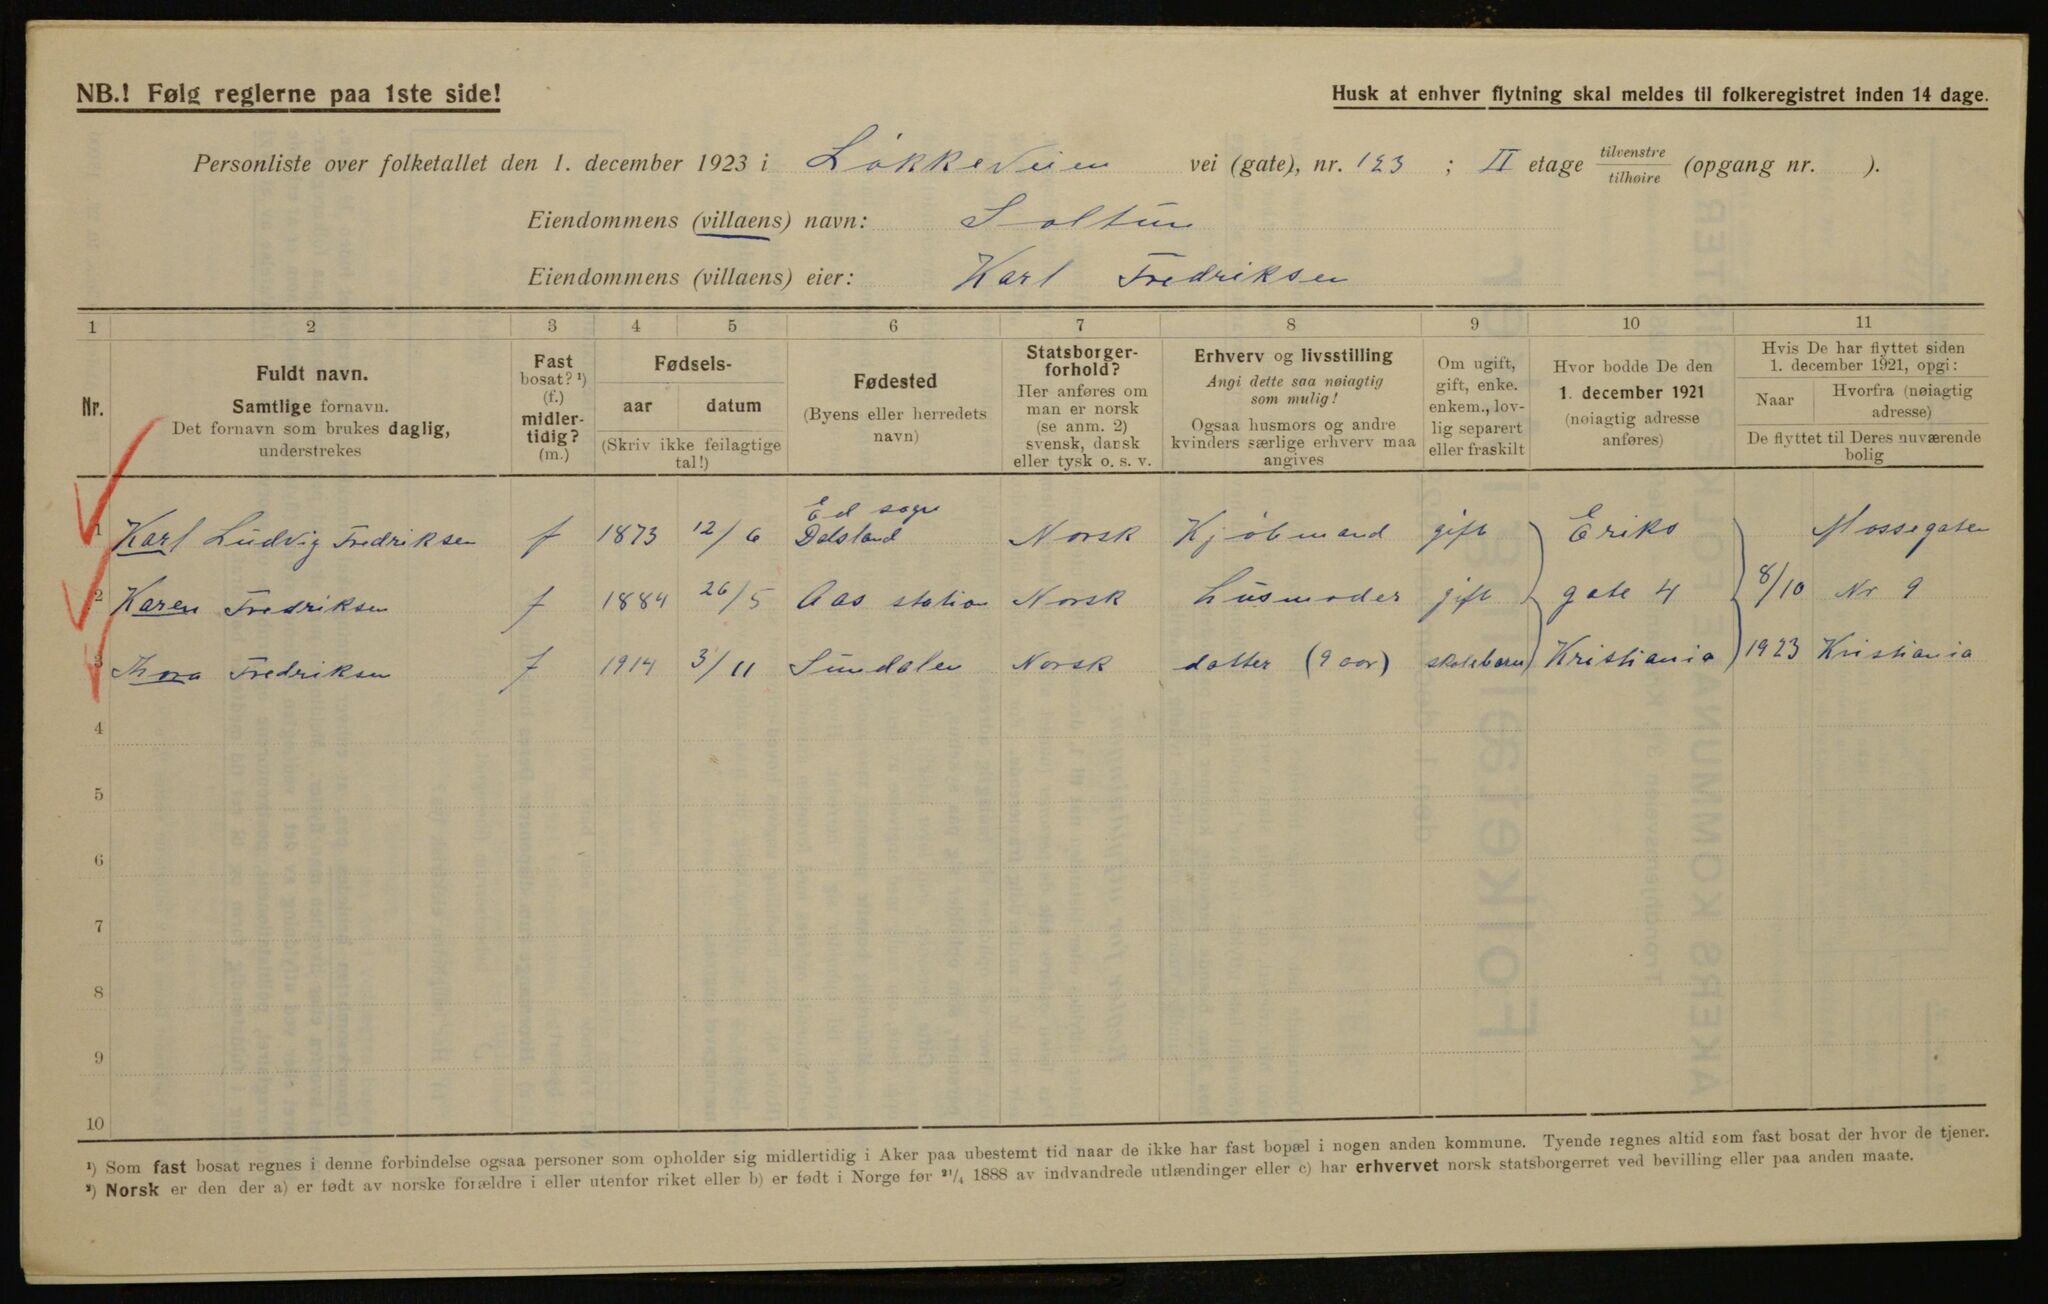 NB.! Følg reglerne paa 1ste side!
Husk at enhver flytning skal meldes til folkeregistret inden 14 dage.
Personliste over folketallet den 1. december 1923 i Løkkeveien vei (gate), nr. 123 ; II etage tilvenstre/tilhøire (opgang nr. ).
Eiendommens (villaens) navn: Soltun
Eiendommens (villaens) eier: Karl Fredriksen
1 2 3 4 5 6 7 8 9 10 11
Nr.
Fuldt navn.
Samtlige fornavn.
Det fornavn som brukes daglig,
understrekes
Fast
bosat? ¹)
(f.)
midler-
tidig?
(m.)
Fødsels-
aar datum
(Skriv ikke feilagtige
tal!)
Fødested
(Byens eller herredets
navn)
Statsborger-
forhold?
Her anføres om
man er norsk
(se anm. 2)
svensk, dansk
eller tysk o. s. v.
Erhverv og livsstilling
Angi dette saa nøiagtig
som mulig!
Ogsaa husmors og andre
kvinders særlige erhverv maa
angives
Om ugift,
gift, enke.
enkem., lov-
lig separert
eller fraskilt
Hvor bodde De den
1. december 1921
(nøiagtig adresse
anføres)
Hvis De har flyttet siden
1. december 1921, opgi:
Naar
Hvorfra (nøiagtig
adresse)
De flyttet til Deres nuværende
bolig
Ed sogn
1 Karl Ludvig Fredriksen f 1873 12/6 Dalsland Norsk Kjøbmand gift Eriks Mossegaten
2 Karen Fredriksen f 1884 26/5 Aas station Norsk Husmoder gift gate 4 8/10 Nr 9
3 Thora Fredriksen f 1914 3/11 Sundalen Norsk datter (9 aar) skolebarn Kristiania 1923 Kristiania
4
5
6
7
8
9
10
¹) Som fast bosat regnes i denne forbindelse ogsaa personer som opholder sig midlertidig i Aker paa ubestemt tid naar de ikke har fast bopæl i nogen anden kommune. Tyende regnes altid som fast bosat der hvor de tjener.
²) Norsk er den der a) er født av norske forældre i eller utenfor riket eller b) er født i Norge før ²¹/₄ 1888 av indvandrede utlændinger eller c) har erhvervet norsk statsborgerret ved bevilling eller paa anden maate.